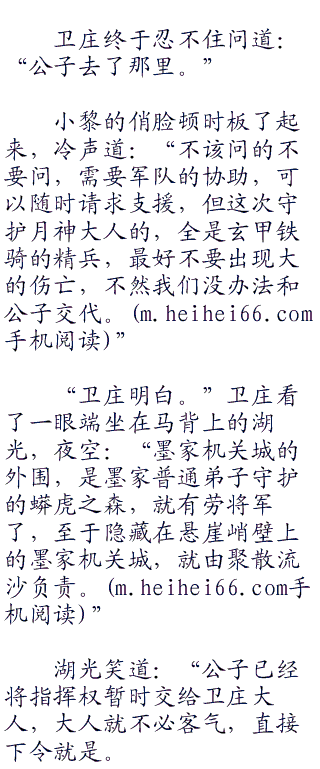 卫庄终于忍不住问道：
“公子去了那里。”
小黎的俏脸顿时板了起
来，冷声道：“不该问的不
要问，需要军队的协助，可
以随时请求支援，但这次守
护月神大人的，全是玄甲铁
骑的精兵，最好不要出现大
的伤亡，不然我们没办法和
公子交代。(m.heihei66.com
手机阅读)”
“卫庄明白。”卫庄看
了一眼端坐在马背上的湖
光，夜空：“墨家机关城的
外围，是墨家普通弟子守护
的蟒虎之森，就有劳将军
了，至于隐藏在悬崖峭壁上
的墨家机关城，就由聚散流
沙负责。(m.heihei66.com手
机阅读)”
湖光笑道：“公子已经
将指挥权暂时交给卫庄大
人，大人就不必客气，直接
下令就是。